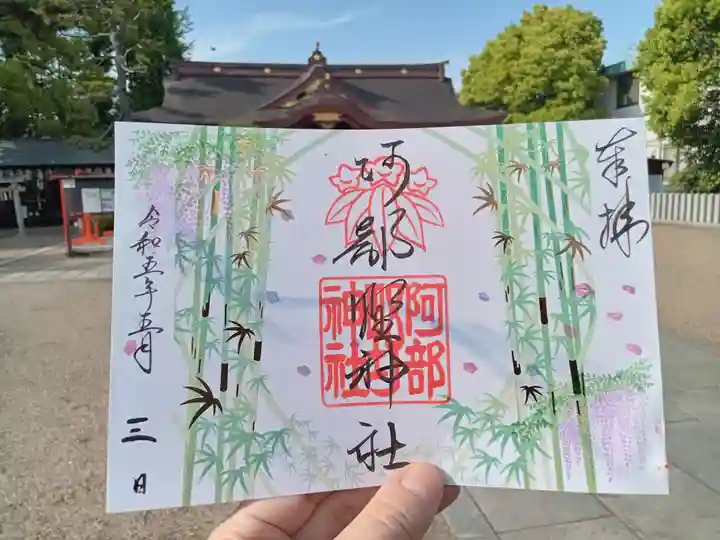 奉拝
阿部野神社
阿部野神社
令和五年五月三日